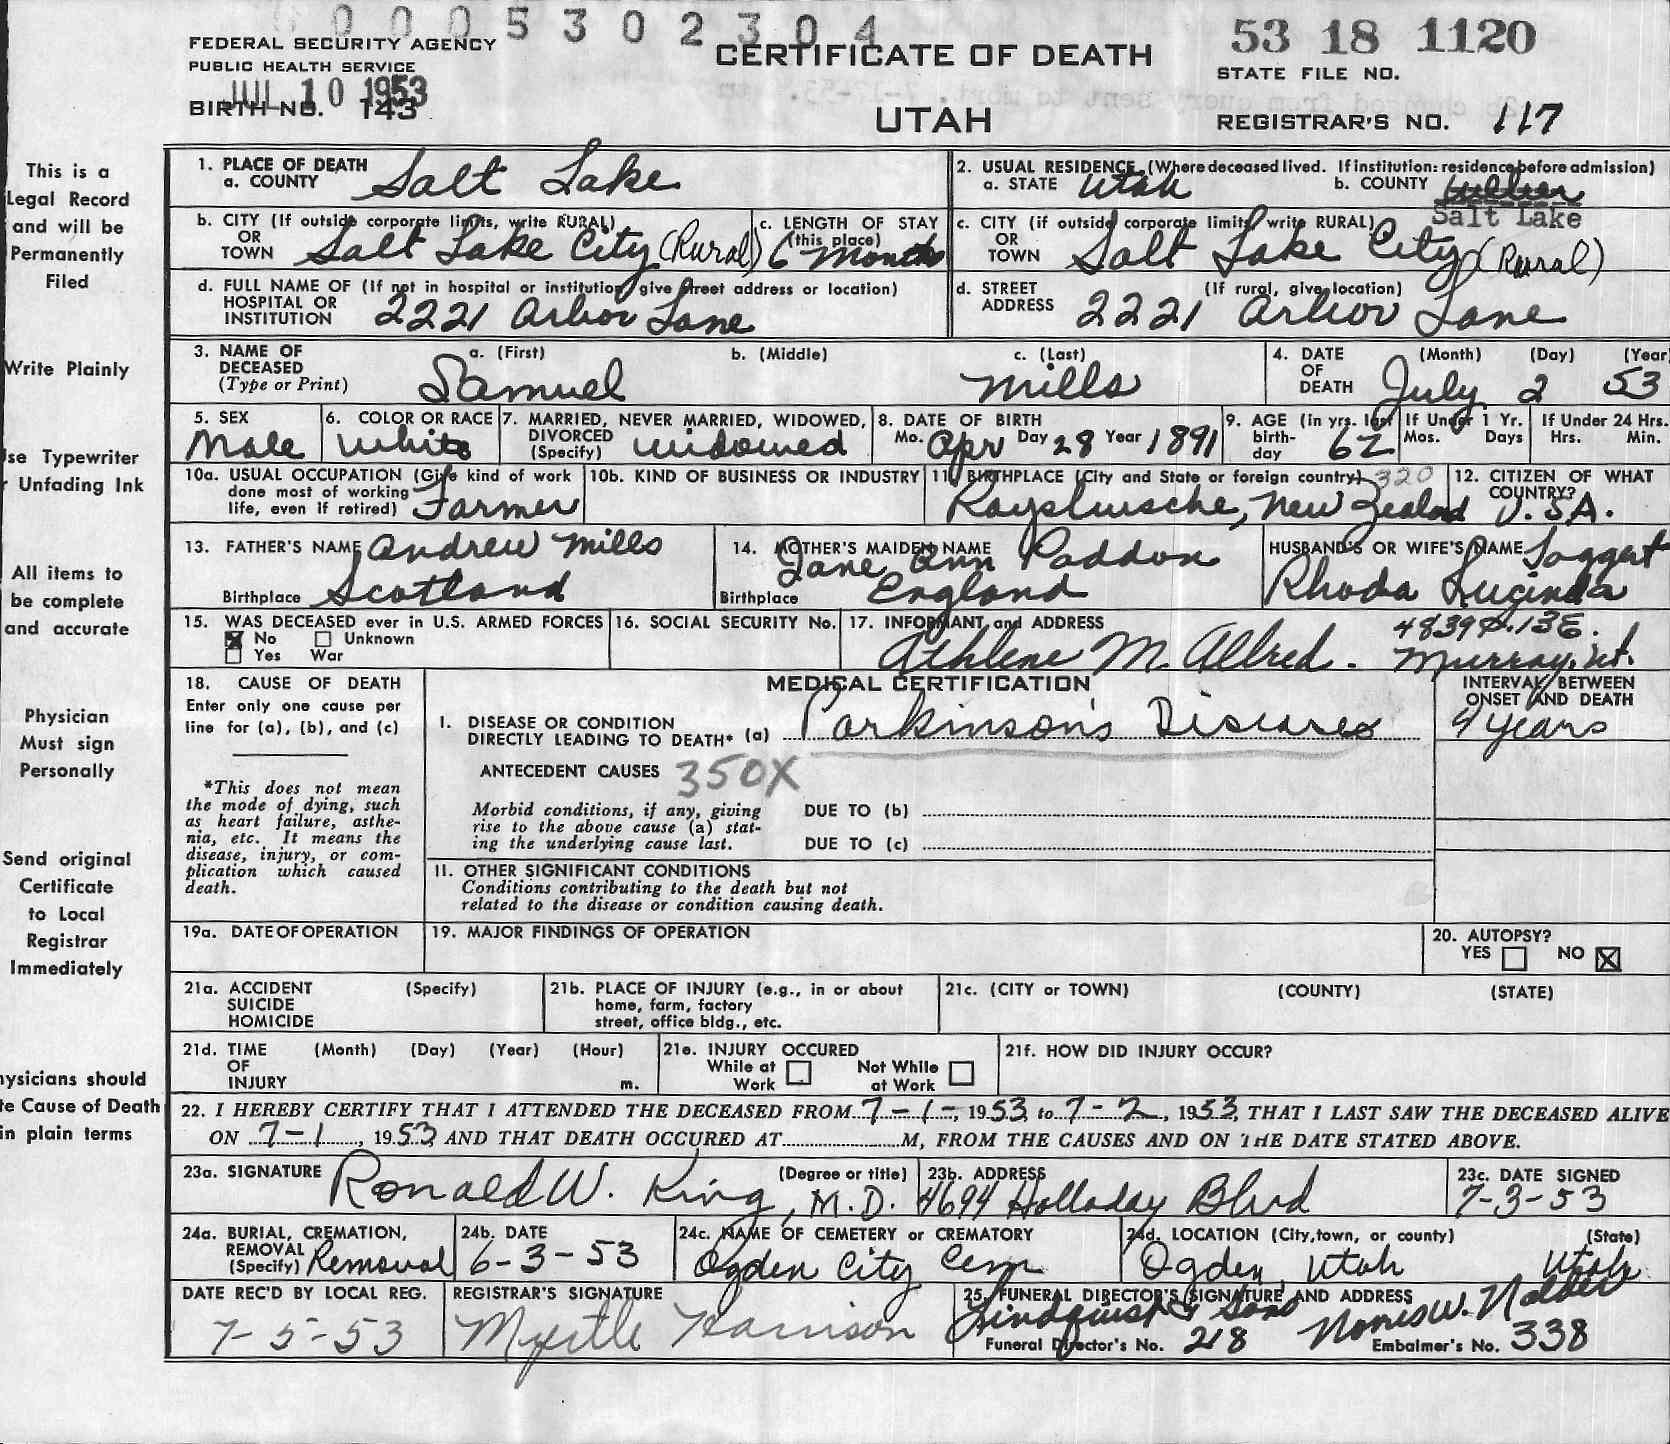 0005302304
FEDERAL SECURITY AGENCY
PUBLIC HEALTH SERVICE
JUL 10 1953
BIRTH NO. 143
CERTIFICATE OF DEATH
UTAH
53 18 1120
STATE FILE NO.
REGISTRAR'S NO. 117
This is a
Legal Record
and will be
Permanently
Filed
Write Plainly
se Typewriter
r Unfading Ink
All items to
be complete
and accurate
Physician
Must sign
Personally
Send original
Certificate
to Local
Registrar
Immediately
hysicians should
te Cause of Death
in plain terms
1. PLACE OF DEATH
a. COUNTY Salt Lake
2. USUAL RESIDENCE (Where deceased lived. If institution: residence before admission)
a. STATE Utah b. COUNTY
Salt Lake
b. CITY (If outside corporate limits, write RURAL)
OR
TOWN Salt Lake City (Rural)
c. LENGTH OF STAY
(this place) 6 Months
c. CITY (if outside corporate limits write RURAL)
OR
TOWN Salt Lake City (Rural)
d. FULL NAME OF (If not in hospital or institution, give street address or location)
HOSPITAL OR
INSTITUTION 2221 Arbor Lane
d. STREET (If rural, give location)
ADDRESS 2221 Arbor Lane
3. NAME OF a. (First) b. (Middle) c. (Last)
DECEASED
(Type or Print) Samuel Mills
4. DATE (Month) (Day) (Year)
OF
DEATH July 2 53
5. SEX
Male
6. COLOR OR RACE
White
7. MARRIED, NEVER MARRIED, WIDOWED,
DIVORCED
(Specify) Widowed
8. DATE OF BIRTH
Mo. Apr Day 28 Year 1891
9. AGE (in yrs. last
birth-
day 62
If Under 1 Yr.
Mos. Days
If Under 24 Hrs.
Hrs. Min.
10a. USUAL OCCUPATION (Give kind of work
done most of working
life, even if retired) Farmer
10b. KIND OF BUSINESS OR INDUSTRY
11. BIRTHPLACE (City and State or foreign country) 320
New Zealand
12. CITIZEN OF WHAT
COUNTRY?
U.S.A.
13. FATHER'S NAME Andrew Mills
Birthplace Scotland
14. MOTHER'S MAIDEN NAME
Jane Ann Paddon
Birthplace England
HUSBAND'S OR WIFE'S NAME Taggart
Rhoda Lucinda
15. WAS DECEASED ever in U.S. ARMED FORCES
No Unknown
Yes War
16. SOCIAL SECURITY No.
17. INFORMANT and ADDRESS
Athlene M. Allred. 4839 S. 13E.
Murray, Ut.
18. CAUSE OF DEATH
Enter only one cause per
line for (a), (b), and (c)
*This does not mean
the mode of dying, such
as heart failure, asthe-
nia, etc. It means the
disease, injury, or com-
plication which caused
death.
MEDICAL CERTIFICATION
INTERVAL BETWEEN
ONSET AND DEATH
I. DISEASE OR CONDITION
DIRECTLY LEADING TO DEATH* (a) Parkinson's Disease
4 years
ANTECEDENT CAUSES 350X
Morbid conditions, if any, giving
rise to the above cause (a) stat-
ing the underlying cause last.
DUE TO (b)
DUE TO (c)
11. OTHER SIGNIFICANT CONDITIONS
Conditions contributing to the death but not
related to the disease or condition causing death.
19a. DATE OF OPERATION
19. MAJOR FINDINGS OF OPERATION
20. AUTOPSY?
YES NO
21a. ACCIDENT (Specify)
SUICIDE
HOMICIDE
21b. PLACE OF INJURY (e.g., in or about
home, farm, factory
street, office bldg., etc.
21c. (CITY or TOWN) (COUNTY) (STATE)
21d. TIME (Month) (Day) (Year) (Hour)
OF
INJURY m.
21e. INJURY OCCURED
While at Not While
Work at Work
21f. HOW DID INJURY OCCUR?
22. I HEREBY CERTIFY THAT I ATTENDED THE DECEASED FROM 7-1-, 1953, to 7-2, 1953, THAT I LAST SAW THE DECEASED ALIVE
ON 7-1, 1953, AND THAT DEATH OCCURED AT M, FROM THE CAUSES AND ON THE DATE STATED ABOVE.
23a. SIGNATURE Ronald W. King, M.D. (Degree or title)
23b. ADDRESS
4694 Holladay Blvd
23c. DATE SIGNED
7-3-53
24a. BURIAL, CREMATION,
REMOVAL
(Specify) Removal
24b. DATE
6-3-53
24c. NAME OF CEMETERY or CREMATORY
Ogden City Cem
24d. LOCATION (City, town, or county) (State)
Ogden, Utah Utah
DATE REC'D BY LOCAL REG.
7-5-53
REGISTRAR'S SIGNATURE
Myrtle Harrison
25. FUNERAL DIRECTOR'S SIGNATURE AND ADDRESS
Lindquist & Sons
Funeral Director's No. 218
Embalmer's No. 338